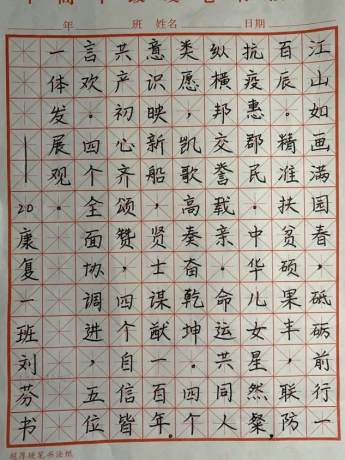 年 班 姓名 日期
江山如画满园春，砥砺前行一
百辰。精准扶贫硕果丰，联防
抗疫惠郡民。中华儿女星然粲，
纵横邦交誉载亲。命运共同人
类愿，凯歌高奏奋乾坤。四个
意识映新船，贤士谋猷一百年。
共产初心齐颂赞，四个自信皆
言欢。四个全面协调进，五位
一体发展观。
——20康复一班刘芬书
硬笔书法纸